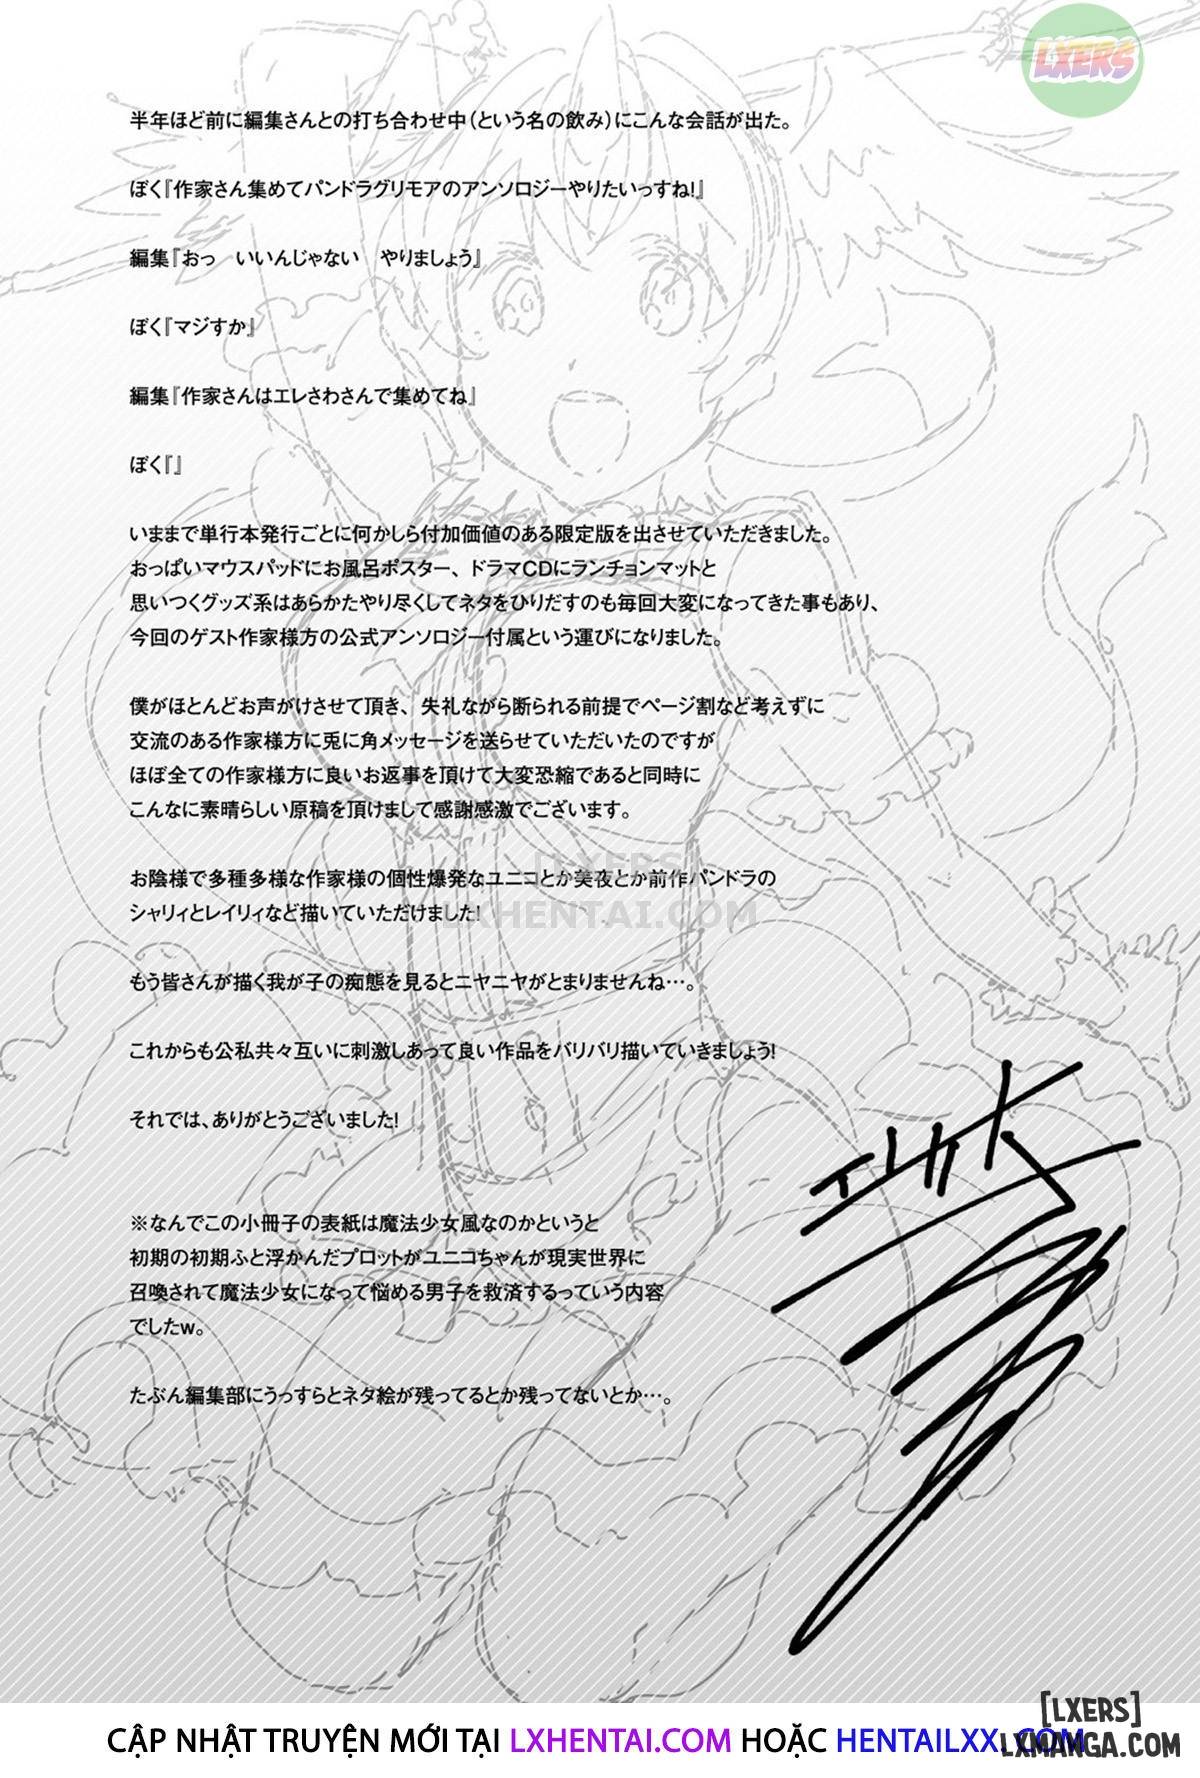 LXERS
半年ほど前に編集さんとの打ち合わせ中(という名の飲み)にこんな会話が出た。
ぼく『作家さん集めてパンドラグリモアのアンソロジーやりたいっすね!』
編集『おっ　いいんじゃない　やりましょう』
ぼく『マジすか』
編集『作家さんはエレさわさんで集めてね』
ぼく『』
いままで単行本発行ごとに何かしら付加価値のある限定版を出させていただきました。
おっぱいマウスパッドにお風呂ポスター、ドラマCDにランチョンマットと
思いつくグッズ系はあらかたやり尽くしてネタをひりだすのも毎回大変になってきた事もあり、
今回のゲスト作家様方の公式アンソロジー付属という運びになりました。
僕がほとんどお声がけさせて頂き、失礼ながら断られる前提でページ割など考えずに
交流のある作家様方に兎に角メッセージを送らせていただいたのですが
ほぼ全ての作家様方に良いお返事を頂けて大変恐縮であると同時に
こんなに素晴らしい原稿を頂けまして感謝感激でございます。
[LXERS]
お陰様で多種多様な作家様の個性爆発なユニコとか美夜とか前作パンドラの
シャリィとレイリィなど描いていただけました!
LXHENTAI.COM
もう皆さんが描く我が子の痴態を見るとニヤニヤがとまりませんね…。
これからも公私共々互いに刺激しあって良い作品をバリバリ描いていきましょう!
それでは、ありがとうございました!
※なんでこの小冊子の表紙は魔法少女風なのかというと
初期の初期ふと浮かんだプロットがユニコちゃんが現実世界に
召喚されて魔法少女になって悩める男子を救済するっていう内容
でしたw。
たぶん編集部にうっすらとネタ絵が残ってるとか残ってないとか…。
[LXERS]
CẬP NHẬT TRUYỆN MỚI TẠI LXHENTAI.COM HOẶC HENTAILXX.COM
LXMANGA.COM